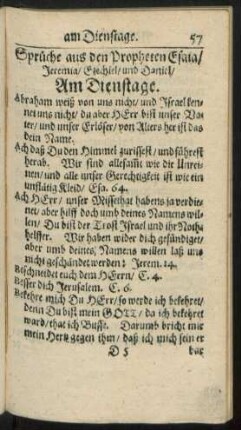 am Dienstage. 57
Sprüche aus den Propheten Esaia/
Jeremia/ Ezechiel/ und Daniel/
Am Dienstage.
Abraham weiß von uns nicht/ und Israel ken-
net uns nicht/ du aber HErr bist unser Va-
ter/ und unser Erlöser/ von Alters her ist das
dein Name.
Ach daß Du den Himmel zurissest/ und führest
herab. Wir sind allesamt wie die Unrei-
nen/ und alle unser Gerechtigkeit ist wie ein
unflätig Kleid/ Esa. 64.
Ach HErr/ unser Missethat habens ja verdie-
net/ aber hilff doch umb deines Namens wil-
len/ Du bist der Trost Israel und ihr Noth-
helffer. Wir haben wider dich gesündiget/
aber umb deines Namens willen laß uns
nicht geschändet werden: Jerem. 14.
Beschneidet euch dem HErrn/ C. 4.
Besser dich Jerusalem. C. 6.
Bekehre mich Du HErr/ so werde ich bekehret/
denn Du bist mein GOTT/ da ich bekehret
ward/ that ich Busse. Darumb bricht mir
mein Hertz gegen ihm/ daß ich mich sein er
D 5